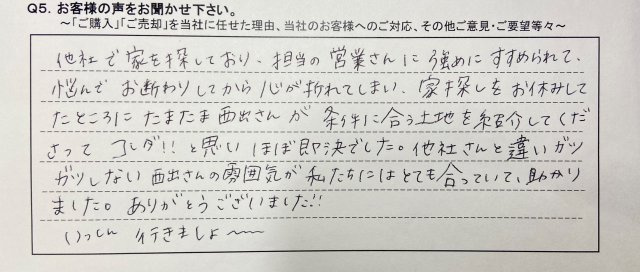 Q5. お客様の声をお聞かせ下さい。
～「ご購入」「ご売却」を当社に任せた理由、当社のお客様へのご対応、その他ご意見・ご要望等々～
他社で家を探しており、担当の営業さんに強めにすすめられて、
悩んでお断わりしてから心が折れてしまい、家探しをお休みして
たところにたまたま西出さんが条件に合う土地を紹介してくだ
さってコレダ!!と思いほぼ即決でした。他社さんと違いガツ
ガツしない西出さんの雰囲気が私たちにはとても合っていて、助かり
ました。ありがとうございました!!
いっしん 行きましょ〜〜